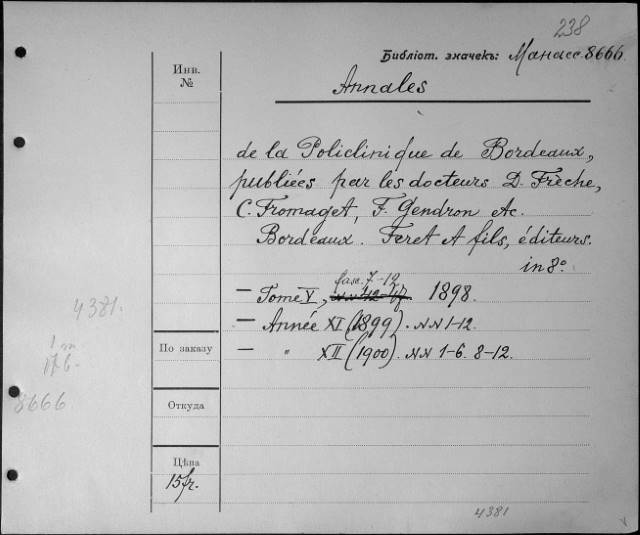 238
Библіот. значекъ: Манасс. 8666.
Инв.
№
Annales
de la Policlinique de Bordeaux,
publiées par les docteurs D. Frèche,
C. Fromaget, F. Gendron etc.
Bordeaux. Feret et fils, éditeurs.
in 8º
fasc. 7-12
— Tome V, 1898.
— Année XI (1899). NN 1-12.
— " XII (1900). NN 1-6. 8-12.
4381.
По заказу
8666
Откуда
Цѣна
15 fr.
4381